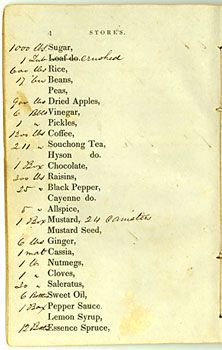 4 STORES.
1000 lbs Sugar,
1 Tub Loaf do. crushed
600 lbs Rice,
17 bu Beans,
Peas,
900 lbs Dried Apples,
6 Bbls Vinegar,
1 " Pickles,
1200 lbs Coffee,
211 " Souchong Tea,
Hyson do.
1 Box Chocolate,
300 lbs Raisins,
25 " Black Pepper,
Cayenne do.
5 " Allspice,
1 Box Mustard, 24 Canisters
Mustard Seed,
6 lbs Ginger,
1 mat Cassia,
1 lb Nutmegs,
1 " Cloves,
30 " Saleratus,
6 Bottles Sweet Oil,
1 Box Pepper Sauce.
Lemon Syrup,
12 Bottles Essence Spruce,